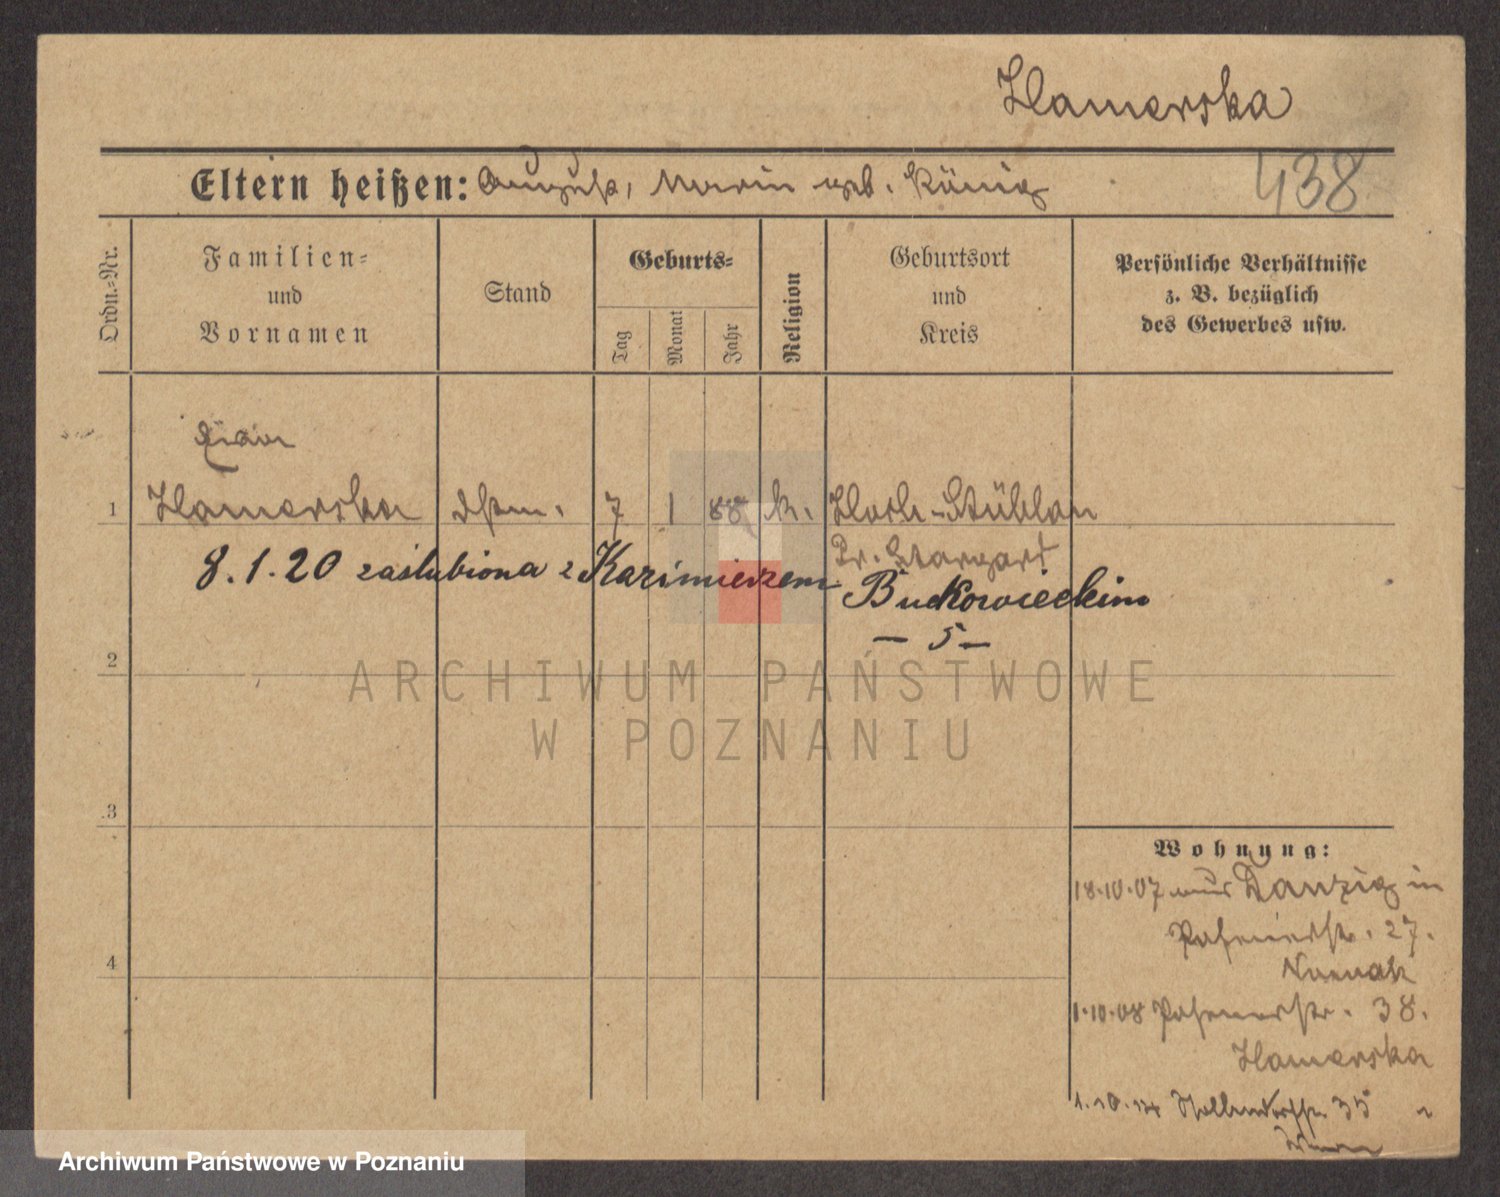 Hamerska
438
Eltern heißen: August, Maria geb. König
Ordn.-Nr.
Familien-
und
Vornamen
Stand
Geburts-
Tag
Monat
Jahr
Religion
Geburtsort
und
Kreis
Persönliche Verhältnisse
z. B. bezüglich
des Gewerbes usw.
1
Hamerska
7
1
88
k.
Hoch-Stüblau
Pr. Stargart
8.1.20 zaślubiona z Kazimierzem
Buckowieckim
- 5 -
2
3
4
Wohnung:
18.10.07 aus Danzig in
Posenerstr. 27.
Nowak
1.10.08 Posenerstr. 38.
Hamerska
35
ARCHIWUM PAŃSTWOWE
W POZNANIU
Archiwum Państwowe w Poznaniu